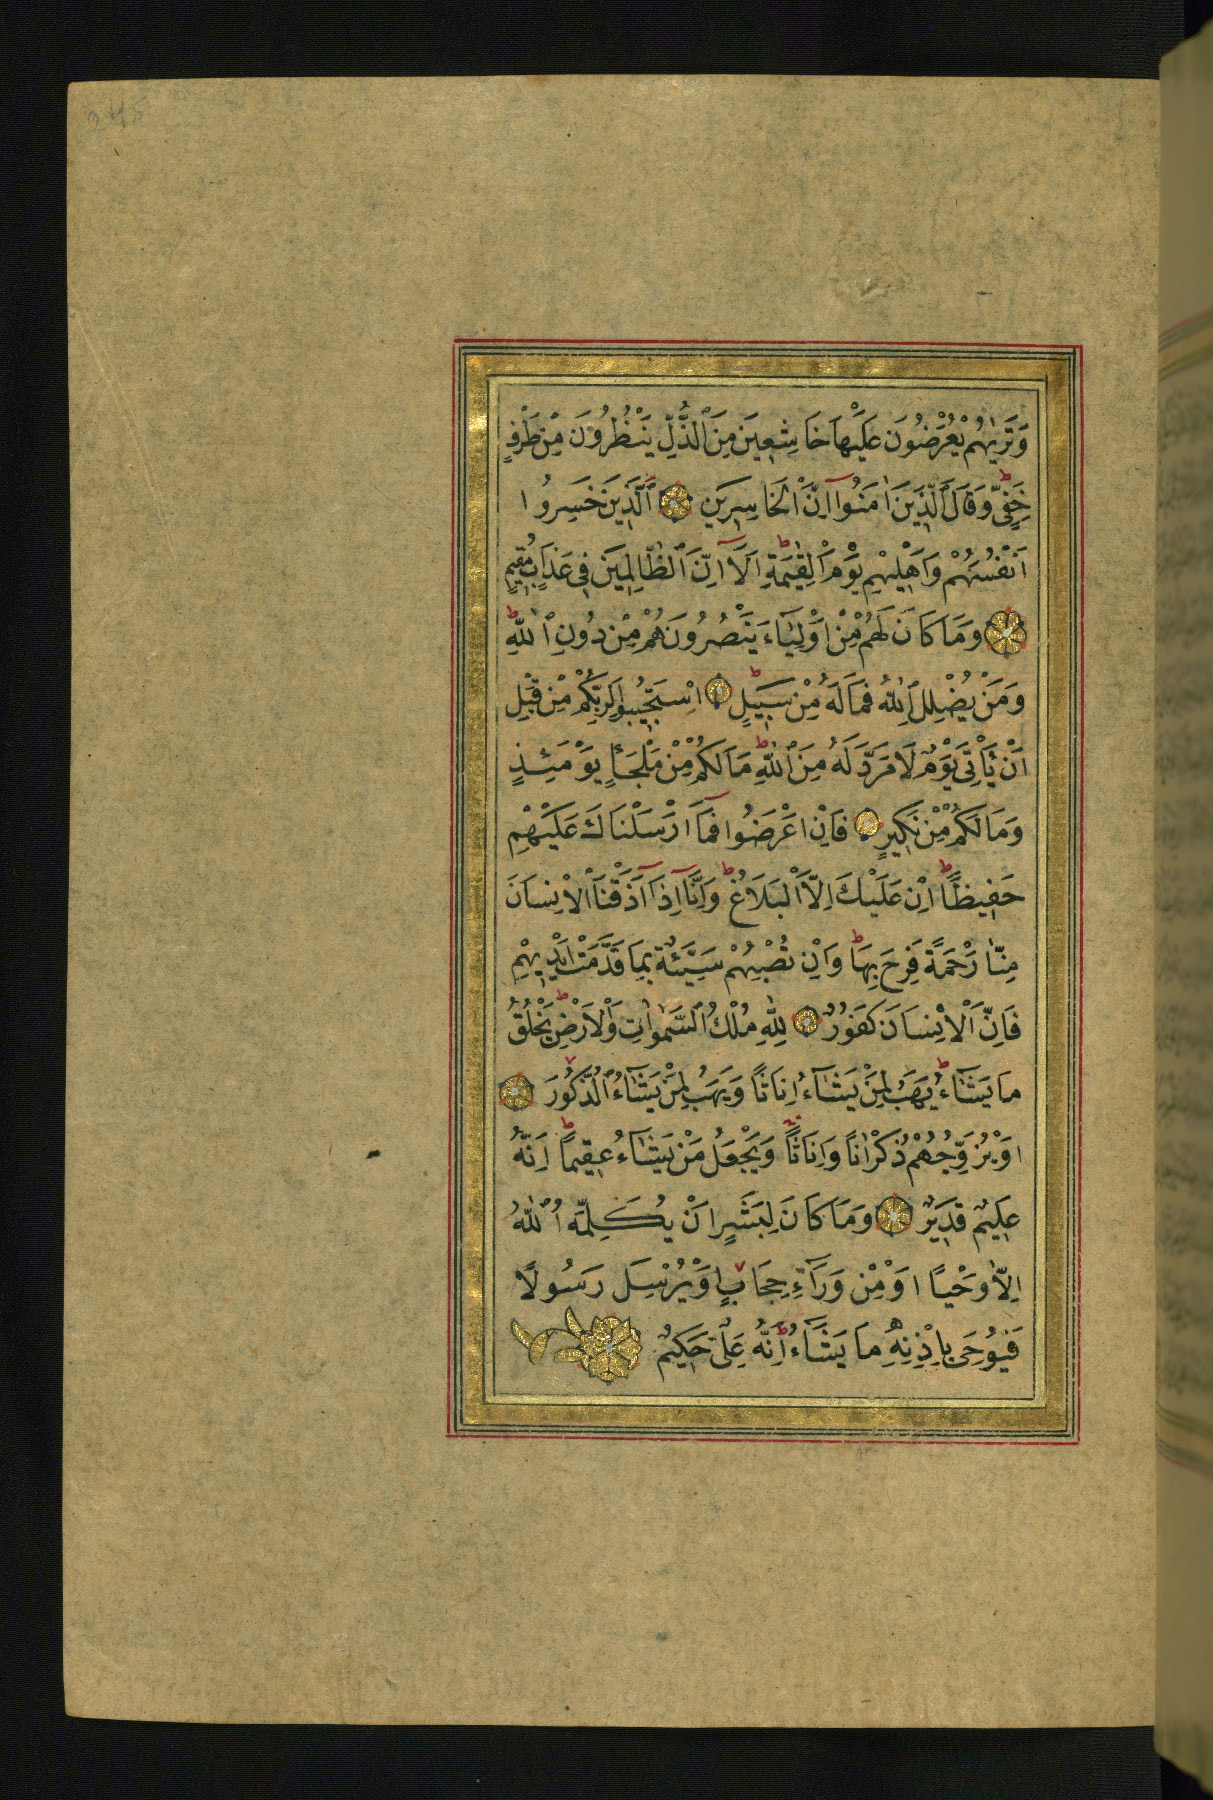 وَتَرٰيهُمْ يُعْرَضُونَ عَلَيْهَا خَاشِعِينَ مِنَ ٱلذُّلِّ يَنْظُرُونَ مِنْ طَرْفٍ
خَفِىٍّ وَقَالَ ٱلَّذِينَ اٰمَنُوآ اِنَّ ٱلْخَاسِرِينَ ٱلَّذِينَ خَسِرُوا
اَنْفُسَهُمْ وَاَهْلِيهِمْ يَوْمَ ٱلْقِيٰمَةِ اَلَآ اِنَّ ٱلظَّالِمِينَ فِى عَذَابٍ مُقِيمٍ
وَمَا كَانَ لَهُمْ مِنْ اَوْلِيَآءَ يَنْصُرُونَهُمْ مِنْ دُونِ ٱللّٰهِ
وَمَنْ يُضْلِلِ ٱللّٰهُ فَمَا لَهُ مِنْ سَبِيلٍ اِسْتَجِيبُوا لِرَبِّكُمْ مِنْ قَبْلِ
اَنْ يَأْتِىَ يَوْمٌ لَا مَرَدَّ لَهُ مِنَ ٱللّٰهِ مَا لَكُمْ مِنْ مَلْجَأٍ يَوْمَئِذٍ
وَمَا لَكُمْ مِنْ نَكِيرٍ فَاِنْ اَعْرَضُوا فَمَآ اَرْسَلْنَاكَ عَلَيْهِمْ
حَفِيظًا اِنْ عَلَيْكَ اِلَّا ٱلْبَلَاغُ وَاِنَّآ اِذَآ اَذَقْنَا ٱلْاِنسَانَ
مِنَّا رَحْمَةً فَرِحَ بِهَا وَاِنْ تُصِبْهُمْ سَيِّئَةٌ بِمَا قَدَّمَتْ اَيْدِيهِمْ
فَاِنَّ ٱلْاِنْسَانَ كَفُورٌ لِلّٰهِ مُلْكُ ٱلسَّمٰوَاتِ وَٱلْاَرْضِ يَخْلُقُ
مَا يَشَآءُ يَهَبُ لِمَنْ يَشَآءُ اِنَاثًا وَيَهَبُ لِمَنْ يَشَآءُ ٱلذُّكُورَ
اَوْ يُزَوِّجُهُمْ ذُكْرَانًا وَاِنَاثًا وَيَجْعَلُ مَنْ يَشَآءُ عَقِيمًا اِنَّهُ
عَلِيمٌ قَدِيرٌ وَمَا كَانَ لِبَشَرٍ اَنْ يُكَلِّمَهُ ٱللّٰهُ
اِلَّا وَحْيًا اَوْ مِنْ وَرَآءِ حِجَابٍ اَوْ يُرْسِلَ رَسُولًا
فَيُوحِىَ بِاِذْنِهِ مَا يَشَآءُ اِنَّهُ عَلِىٌّ حَكِيمٌ